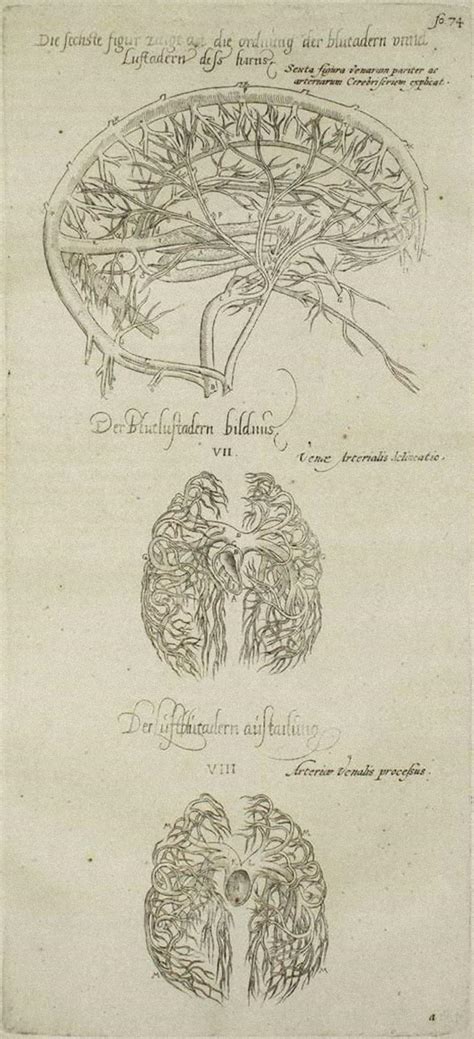 fo 74
Die sechste figur zaigt an die ordnung der blutadern vnnd
Luftadern dess hirns
Sexta figura venarum pariter ac
arteriarum Cerebri seriem explicat.
Der blutluftadern bildnus
VII.
Venæ Arterialis delineatio.
Der luftblutadern austailung
VIII
Arteriæ Venalis processus.
a